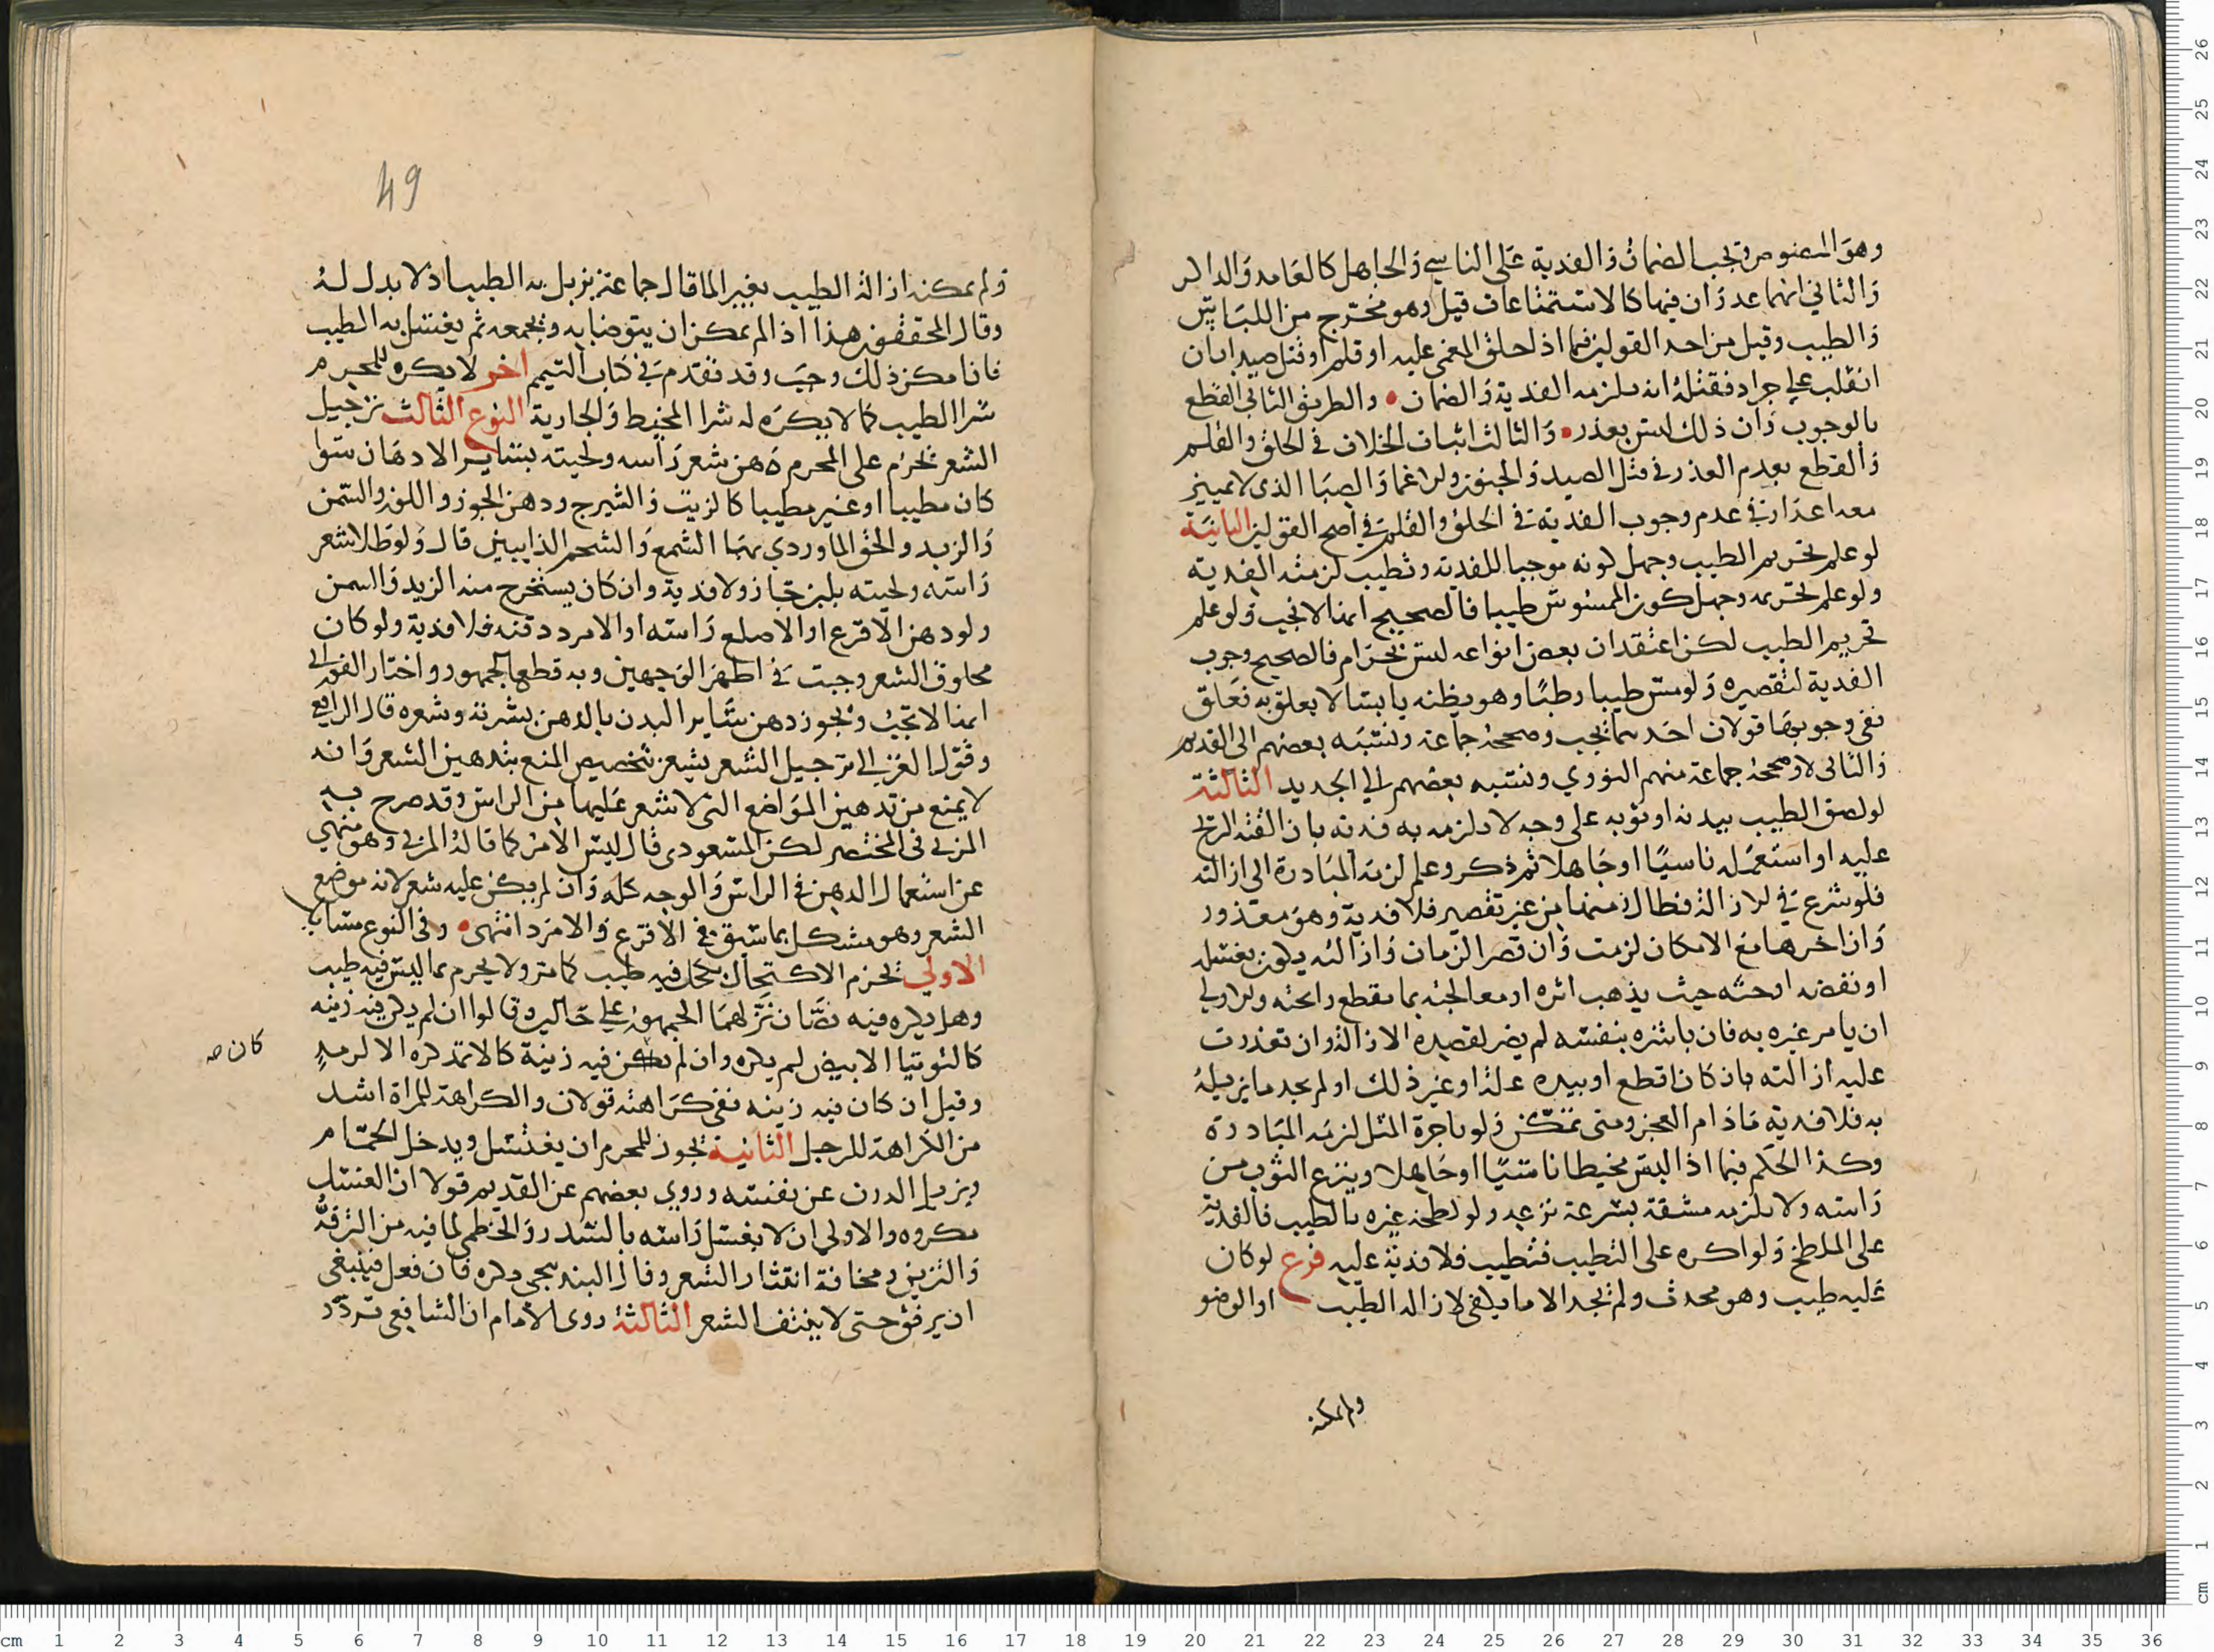 وهو المنصوص وتجب الضمان والفدية على الناسي والجاهل كالعامد والذاكر
والثاني انهما عذران فيها كالاستمتاعات قيل وهو مخرج من اللباس
والطيب وقيل من احد القولين فيما اذا حلق المغمى عليه او قلم او قتل صيدا بان
انقلب على جراد فقتله انه يلزمه الفدية والضمان والطريق الثاني القطع
بالوجوب وان ذلك ليس بعذر والثالث اثبات الخلاف في الحلق والقلم
والقطع بعدم العذر في قتل الصيد والجنون والاغما والصبا الذي لا تمييز
معه اعذار في عدم وجوب الفدية في الحلق والقلم في اصح القولين الثانية
لو علم تحريم الطيب وجهل كونه موجبا للفدية وتطيب لزمته الفدية
ولو علم تحريمه وجهل كون الممسوس طيبا فالصحيح انها لا تجب ولو علم
تحريم الطيب لكن اعتقد ان بعض انواعه ليس بحرام فالصحيح وجوب
الفدية لتقصيره ولو مس طيبا رطبا وهو يظنه يابسا لا يعلق به فعلق
ففي وجوبها قولان احدهما تجب وصححه جماعة ونسبه بعضهم الى القديم
والثاني لا وصححه جماعة منهم النووي ونسبه بعضهم الي الجديد الثالثة
لو لصق الطيب ببدنه او ثوبه على وجه لا يلزمه به فدية بان القته الريح
عليه او استعمله ناسيا او جاهلا ثم ذكر وعلم لزمته المبادرة الى ازالته
فلو شرع في الازالة فطال زمنها من غير تقصير فلا فدية وهو معذور
وان اخرها مع الامكان لزمت وان قصر الزمان وازالته يكون بغسله
او نفضه او حته حيث يذهب اثره او معالجته بما يقطع رائحته والاولي
ان يامر غيره به فان باشره بنفسه لم يضر لقصده الازالة وان تعذرت
عليه ازالته بان كان اقطع او بيده علة او غير ذلك او لم يجد ما يزيله
به فلا فدية مادام العجز ومتى تمكن ولو باجرة المثل لزمه المبادرة
وكذا الحكم فيما اذا لبس مخيطا ناسيا او جاهلا وينزع الثوب من
راسه ولا يلزمه مشقة بسرعة نزعه ولو لطخه غيره بالطيب فالفدية
على الملطخ ولو اكره على التطيب فتطيب فلا فدية عليه فرع لو كان
عليه طيب وهو محدث ولم يجد الا ما يكفي لازالة الطيب او الوضو
ولم يمكنه
49
ولم يمكنه ازالة الطيب بغير الما قال جماعة يزيل به الطيب اذ لا بدل له
وقال المحققون هذا اذا لم يمكن ان يتوضا به ويجمعه ثم يغسل به الطيب
فان امكن ذلك وجب وقد تقدم في كتاب التيمم اخر لا يكره للمحرم
شرا الطيب كما لا يكره له شرا المخيط والجارية النوع الثالث ترجيل
الشعر يحرم على المحرم دهن شعر راسه ولحيته بسائر الادهان سوا
كان مطيبا او غير مطيبا كالزيت والشيرج ودهن الجوز واللوز والسمن
والزبد والحق الماوردي بهما الشمع والشحم الذايبين قال ولو طلا شعر
راسه ولحيته بلبن جاز ولا فدية وان كان يستخرج منه الزبد والسمن
ولو دهن الاقرع او الاصلع راسه او الامرد دقنه فلا فدية ولو كان
محلوق الشعر وجبت في اظهر الوجهين وبه قطع الجمهور واختار الفوراني
انها لا تجب ويجوز دهن سائر البدن بالدهن بشرته وشعره قال الرافعي
وقول الغزالي ترجيل الشعر يشعر بتخصيص المنع بتدهين الشعر وانه
لا يمنع من تدهين المواضع التي لا شعر عليها من الراس وقد صرح به
المزني في المختصر لكن المسعودي قال ليس الامر كما قاله المزني وهو منهي
عن استعمال الدهن في الراس والوجه كله وان لم يكن عليه شعر لانه موضع
الشعر وهو مشكل بما سبق في الاقرع والامرد انتهى وفي النوع مسائل
الاولي يحرم الاكتحال بكحل فيه طيب كما مر ولا يحرم بما ليس فيه طيب
وهل يكره فيه نصان نزلهما الجمهور على حالين وقالوا ان لم يكن فيه زينه
كالتوتيا الابيض لم يكره وان لم يكن فيه زينة كالاثمد كره الا لرمد
كان صه
وقيل ان كان فيه زينه ففي كراهته قولان والكراهة للمراة اشد
من الكراهة للرجل الثانية يجوز للمحرم ان يغتسل ويدخل الحمام
ويزيل الدرن عن نفسه وروي بعضهم عن القديم قولا ان الغسل
مكروه والاولى ان لا يغسل راسه بالسدر والخطمي لما فيه من الترفه
والتزين ومخافة انتثار الشعر وقال البندنيجي يكره فان فعل فينبغي
ان يرفق حتى لا ينتف الشعر الثالثة روى الامام ان الشافعي تردد